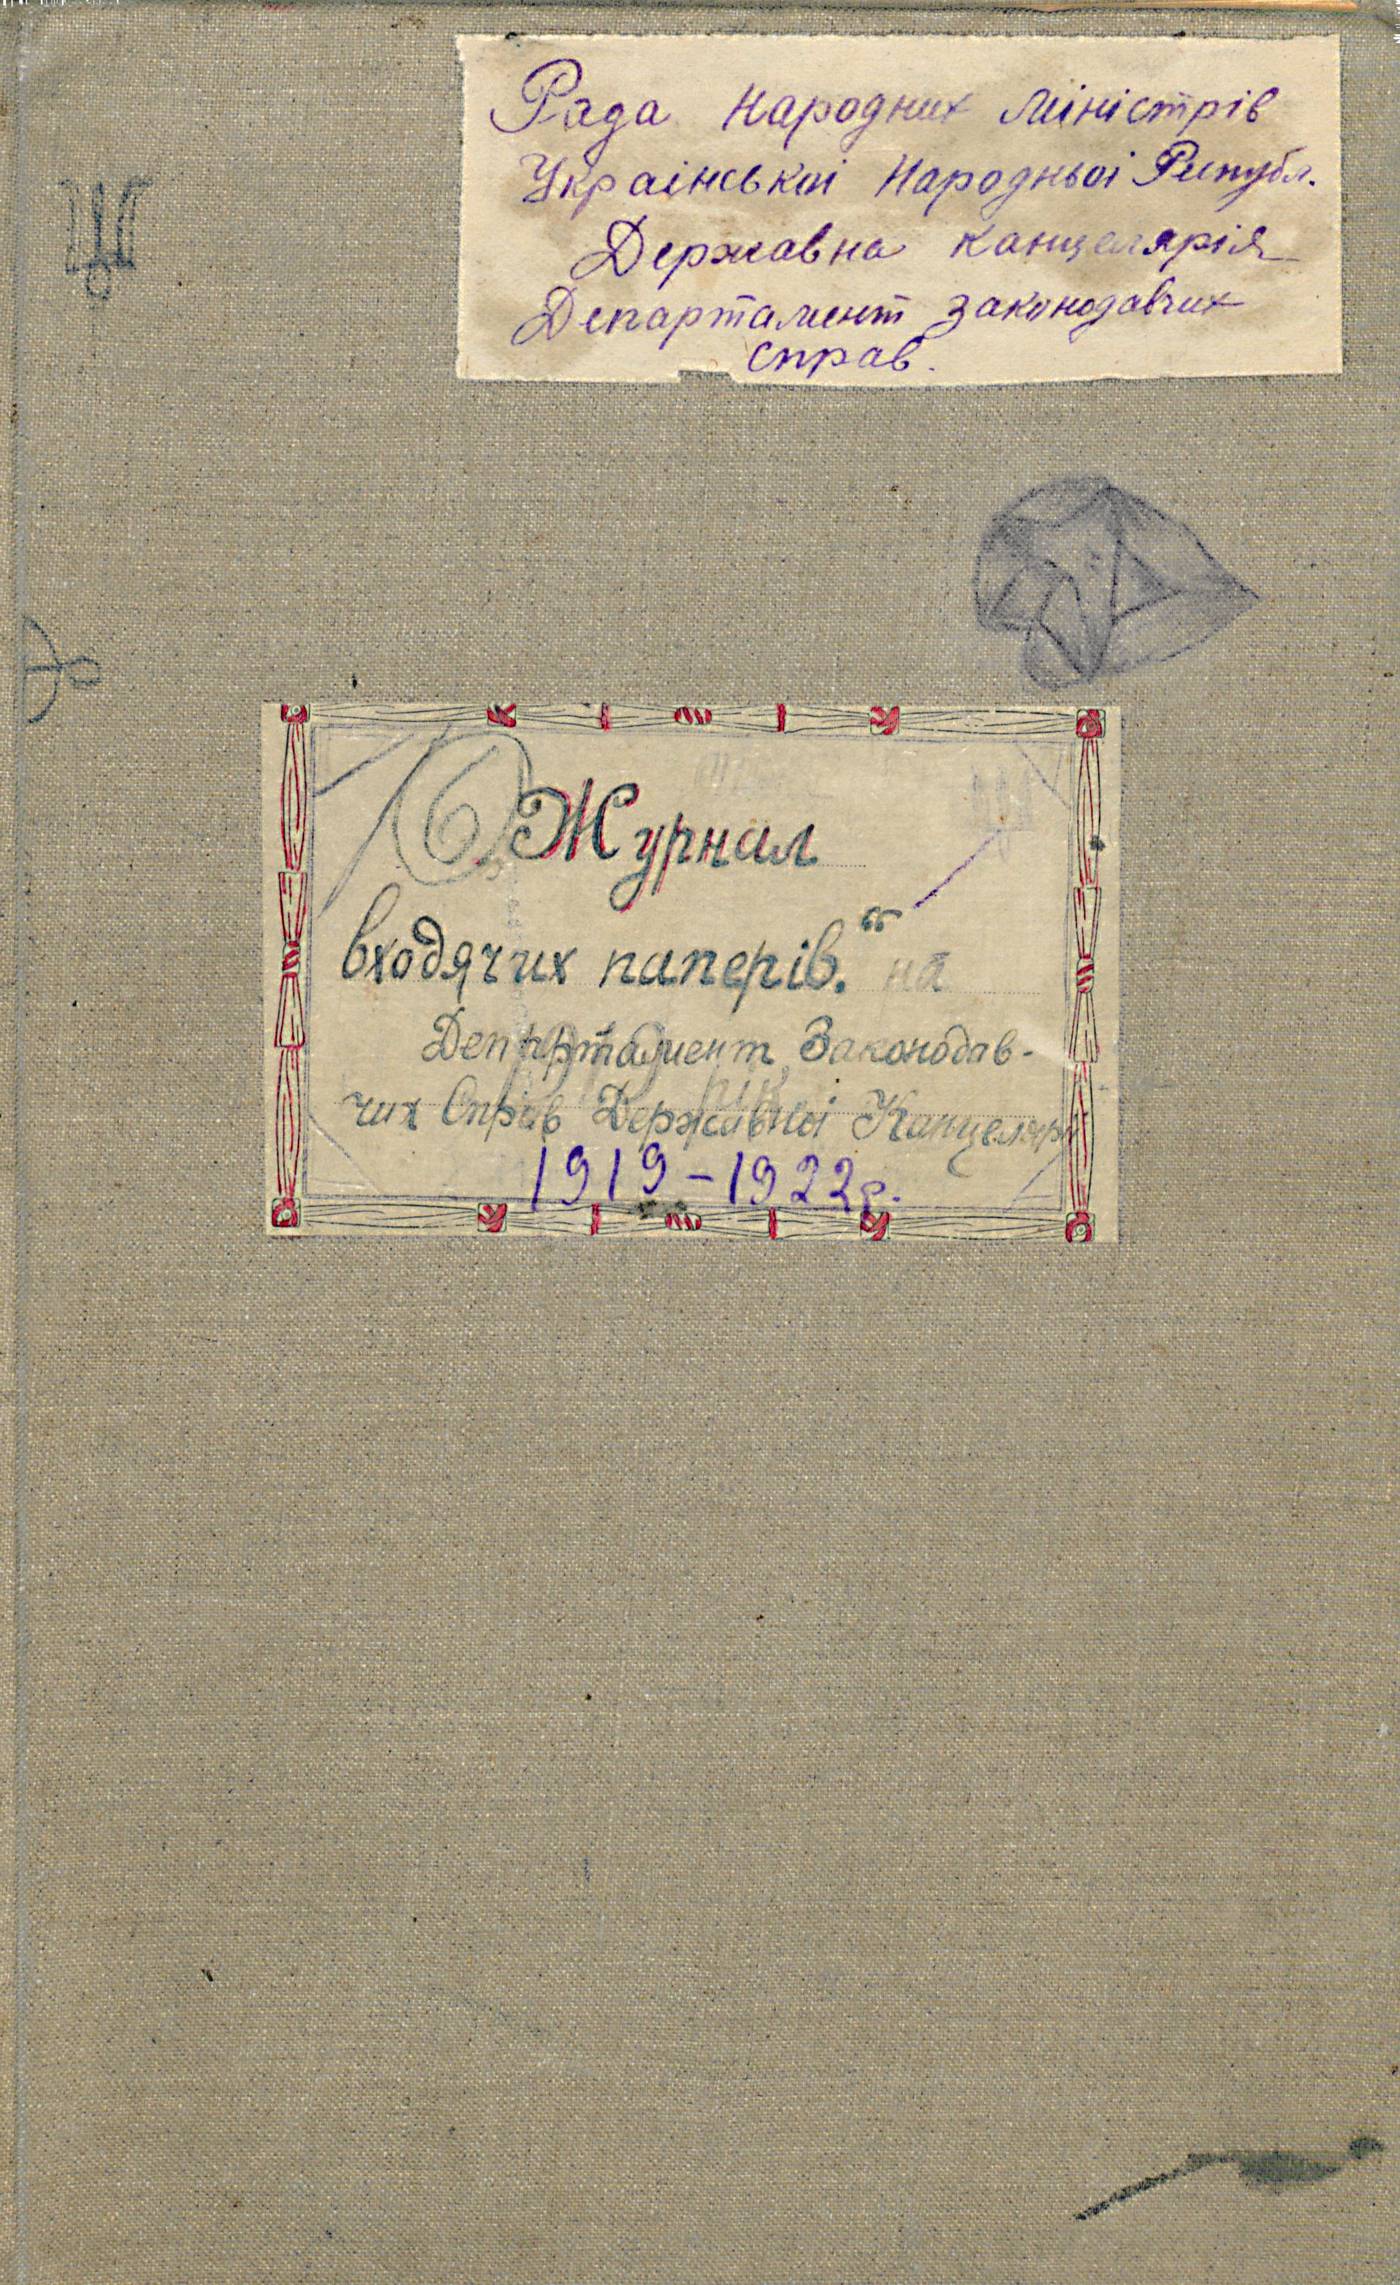 Рада Народних Міністрів
Української Народньої Републ.
Державна Канцелярія
Департамент Законодавчих
справ.
6
„Журнал
входячих паперів.“ на
Департамент Законодав-
чих Справ Державної Канцеляр
1919-1922р.